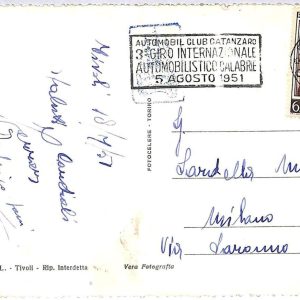 AUTOMOBIL CLUB CATANZARO
3° GIRO INTERNAZIONALE
AUTOMOBILISTICO CALABRIE
5 AGOSTO 1951
6
Tivoli 18/7/51
Saluti Cordiali
FOTOCELERE - TORINO
Sardella
Milano
Via Saronno
L. - Tivoli - Rip. Interdetta
Vera Fotografia